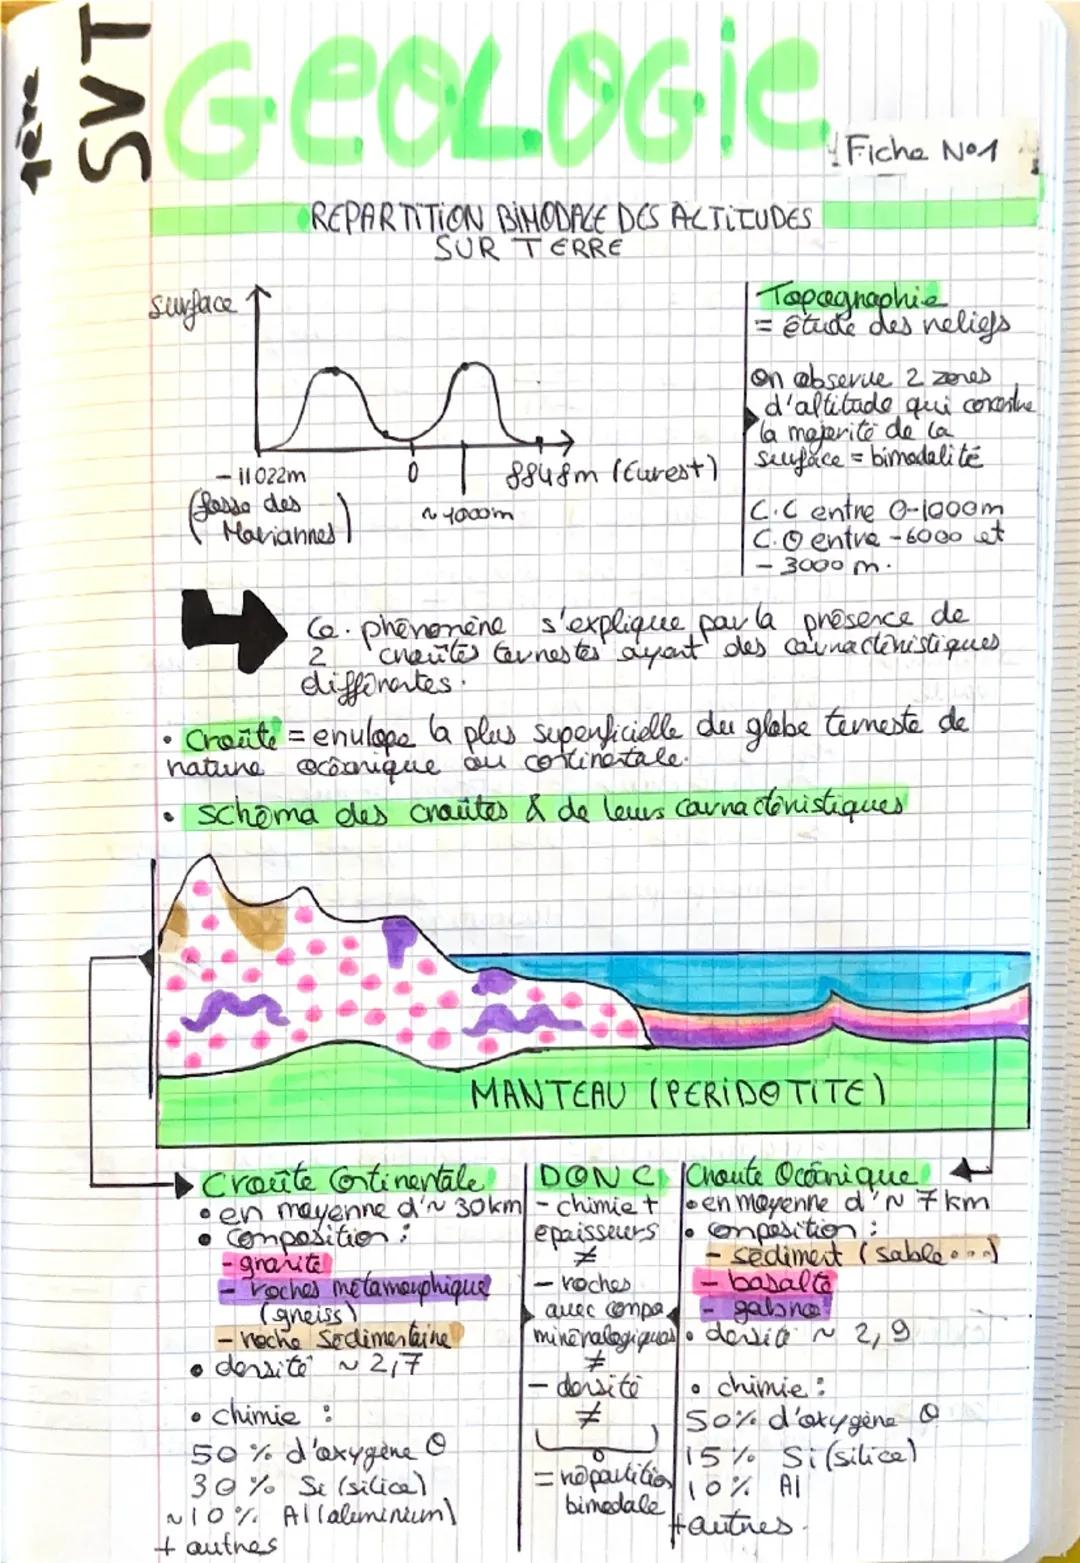 1ère
SVT
GEOLOGIE
Fiche N°1
REPARTITION BIMODALE DES ALTITUDES
SUR TERRE
surface
-11022m
(fosse des
Mariannes)
0
~1000m
8848m (Everest)
Topographie
= étude des reliefs
on observe 2 zones
d'altitude qui concentre
la majorité de la
surface = bimodalité
C.C entre 0-1000m
C.O entre -6000 et
- 3000 m.
Ce phénomène s'explique par la présence de
2 croûtes terrestes ayant des caractéristiques
différentes.
• Croûte = envelope la plus superficielle du globe terreste de
nature océanique ou continentale.
• schéma des croûtes & de leurs caractéristiques
MANTEAU (PERIDOTITE)
Croûte Continentale
• en moyenne d'~ 30km
• composition :
- granite
- roches métamorphique
(gneiss)
- roche sédimentaire
• densité ~ 2,7
• chimie :
50 % d'oxygène O
30 % Si (silice)
~10 % Al (aluminium)
+ autres
DONC
- chimie +
epaisseurs
≠
- roches
avec compo
minéralogiques
≠
- densité
≠
= répartition
bimodale
Croute Océanique
• en moyenne d'~ 7km
• composition :
- sédiment (sable...)
- basalte
- gabbro
• densité ~ 2,9
• chimie :
50% d'oxygène O
15% Si (silice)
10% Al
+autres.